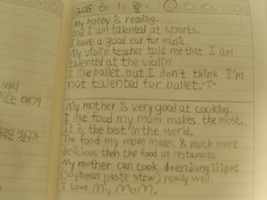 2015. 6.
My hobby is reading.
and I am talented at sports.
I have a good ear for music.
My violin teacher told me that I am
talented at the violin
I like ballet, but I don't think I'm
not talented for ballet.
My mother is very good at cooking.
I like the food my mom makes the most.
It is the best in the world.
The food my mom makes is much more
delicious than the food at restaurants
My mother can cook doenjang jjigae
(soybean paste stew) really well.
I love my mom.